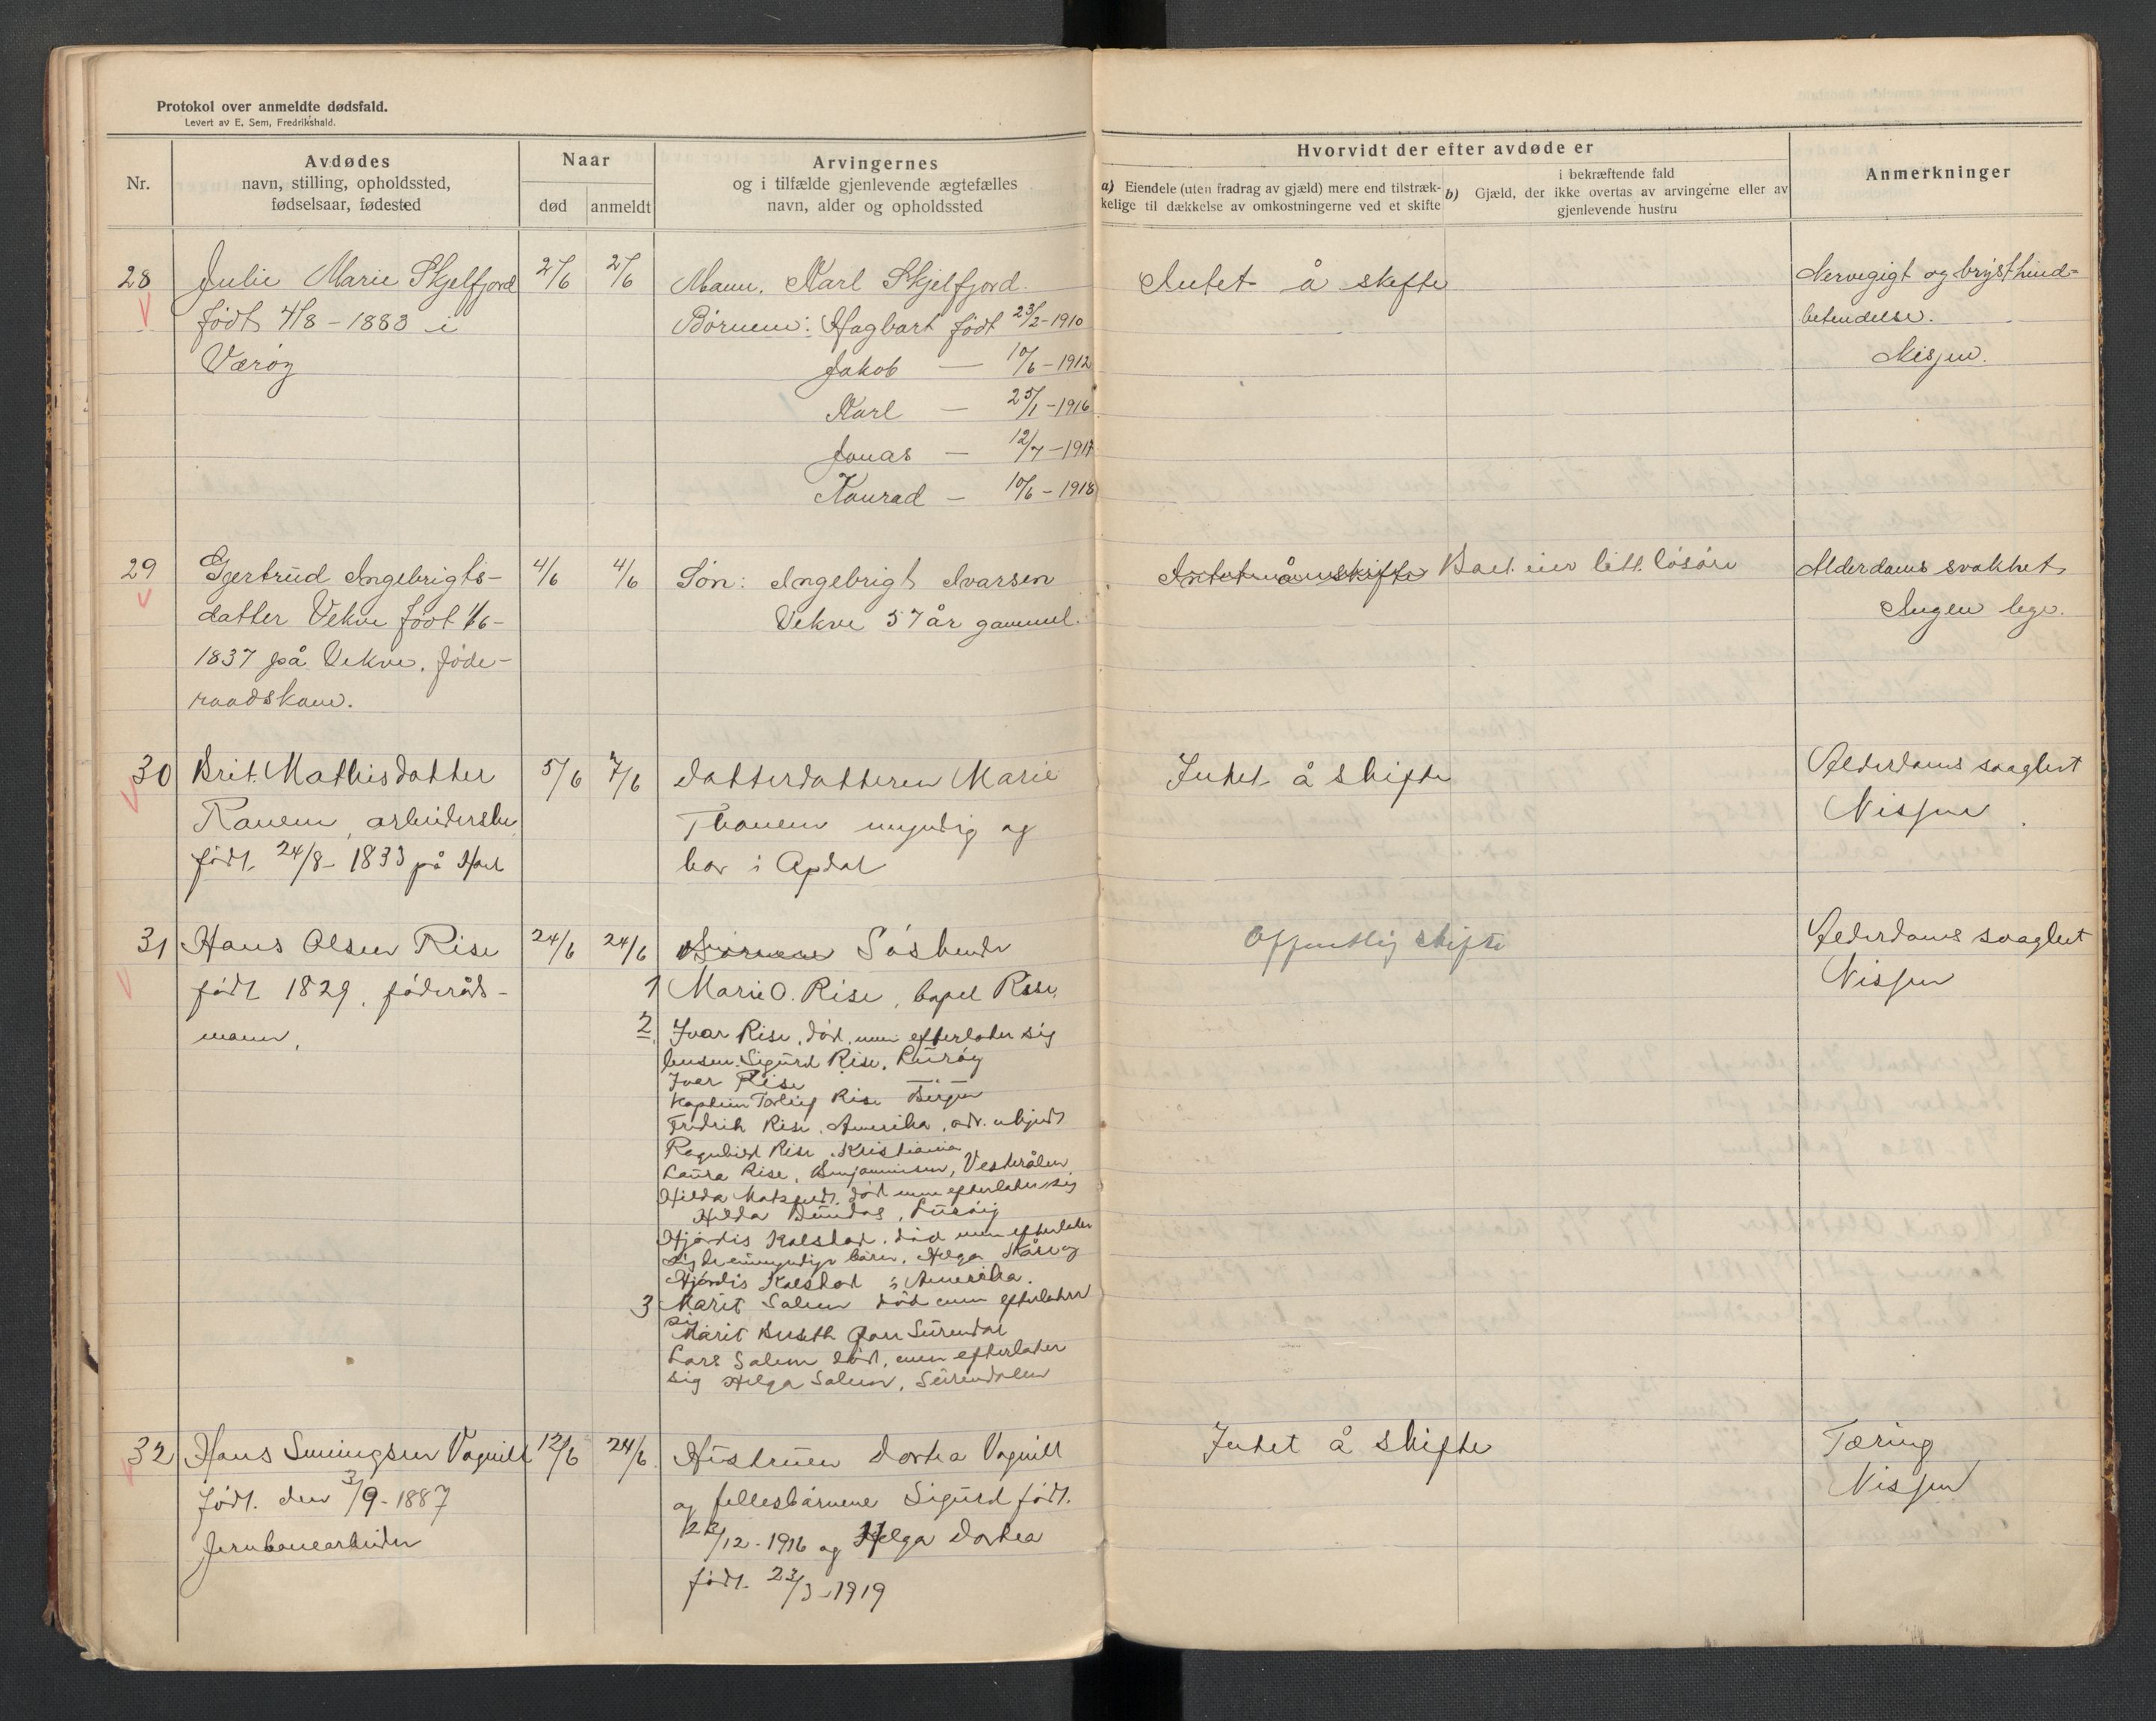 Protokol over anmeldte dødsfald.
Levert av E. Sem, Fredrikshald.
Nr.
Avdødes
navn, stilling, opholdssted,
fødselsaar, fødested
Naar
død
anmeldt
Arvingernes
og i tilfælde gjenlevende ægtefælles
navn, alder og opholdssted
Hvorvidt der efter avdøde er
a) Eiendele (uten fradrag av gjæld) mere end tilstræk-
kelige til dækkelse av omkostningerne ved et skifte
i bekræftende fald
b) Gjæld, der ikke overtas av arvingerne eller av
gjenlevende hustru
Anmerkninger
28
Julie Marie Skjelfjord
født 4/8 - 1883 i
Værøy
2/6
2/6
Mann. Karl Skjelfjord.
Børnene: Hagbart født 23/2 - 1910
Jakob — 10/6 - 1912
Karl — 25/1 - 1916
Jonas — 12/7 - 1917
Konrad — 10/6 - 1918
Intet å skifte
Nervegigt og brysthind-
betendelse.
Nisjen.
29
Gjertrud Ingebrigts-
datter Vekve født 1/6 -
1837 på Vekve. føde-
raadskone.
4/6
4/6
Søn: Ingebrigt Ivarsen
Vekve 57 år gammel.
Intet å skifte Boet eier litt løsøre
Alderdoms svakhet
Ingen lege.
30
Brit Mathisdatter
Ranem, arbeiderske
født 24/8 - 1833 på
5/6
7/6
Datterdatteren Marie
myndig og
bor i Opdal
Intet å skifte
Alderdoms svaghet
Nissen
31
Hans Olsen Rise
født 1829, føderåds-
mann,
24/6
24/6
Børnene Søskende
1 Marie O. Rise, Rise,
2 Ivar Rise, død, men efterlater sig
Sigurd Rise, Lurøy
Ivar Rise
Kaptein Rise Bergen
Fredrik Rise, Amerika, adr. ukjent
Ragnhild Rise, Kristiania
Laura Rise, Benjaminsen, Vesterålen
Hilda død men efterlater sig
Hilda Lurøy
Hjørdis Kalstad, død men efterlater
sig umyndige børn, Helga Kåre og
Hjørdis Kalstad i Amerika.
3 Marit Salem død men efterlater
sig
Marit Surendal
Lars Salem død, men efterlater
sig Helga Salem, Surendalen
Offentlig skifte
Alderdoms svaghet
Nissen
32
Hans Vognill
født den 3/9 - 1887
Jernbanearbeider
12/6
24/6
Hustruen Dortea Vognill
og fellesbørnene Sigurd født
23/12 - 1916 og Helga Dortea
født 23/3 - 1919
Intet å skifte
Tæring
Nissen